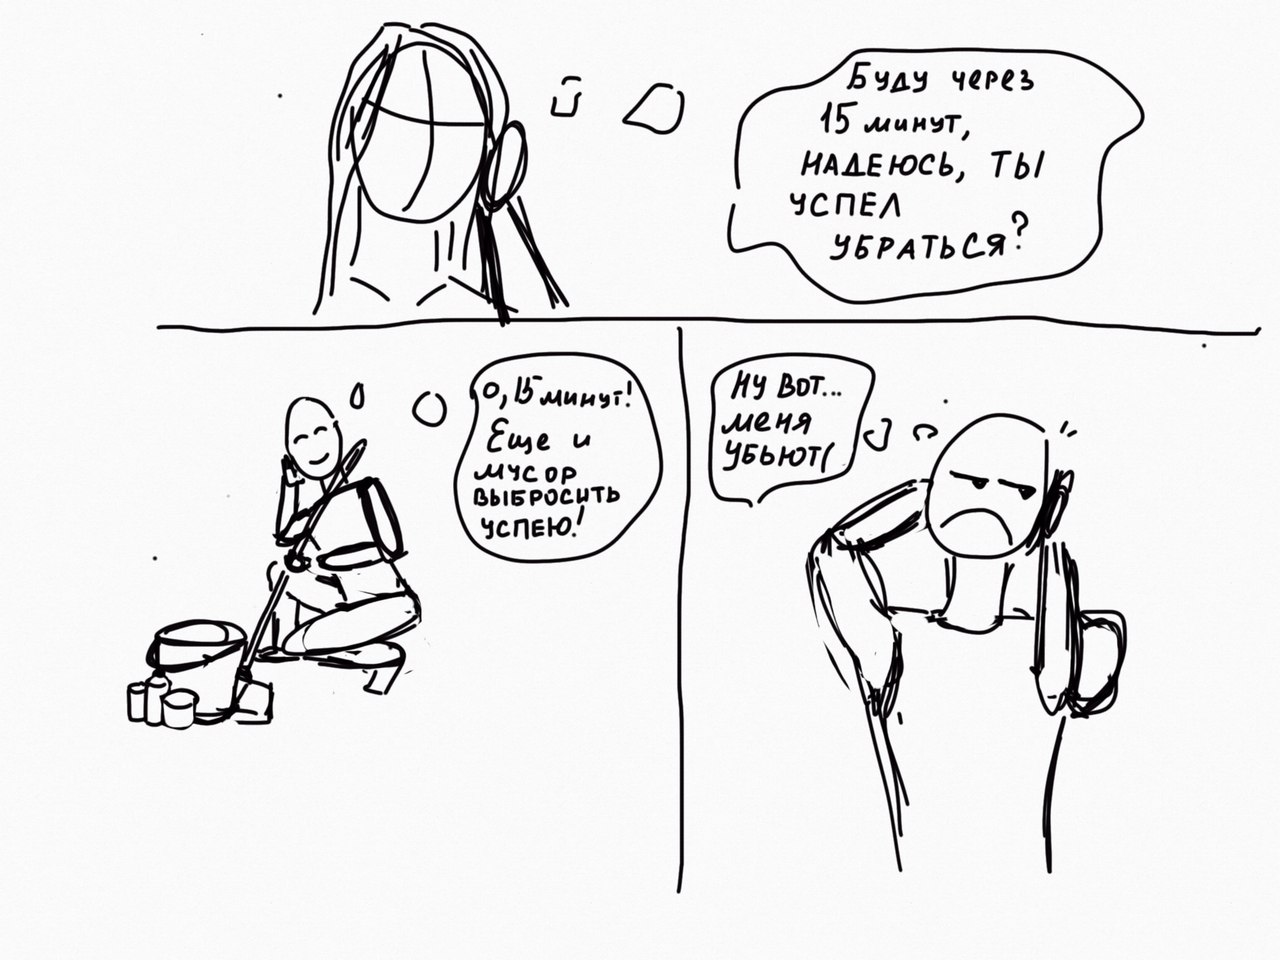 Буду через
15 минут,
надеюсь, ты
успел
убраться?
О, 15 минут!
Еще и
мусор
выбросить
успею!
Ну вот...
меня
убьют(